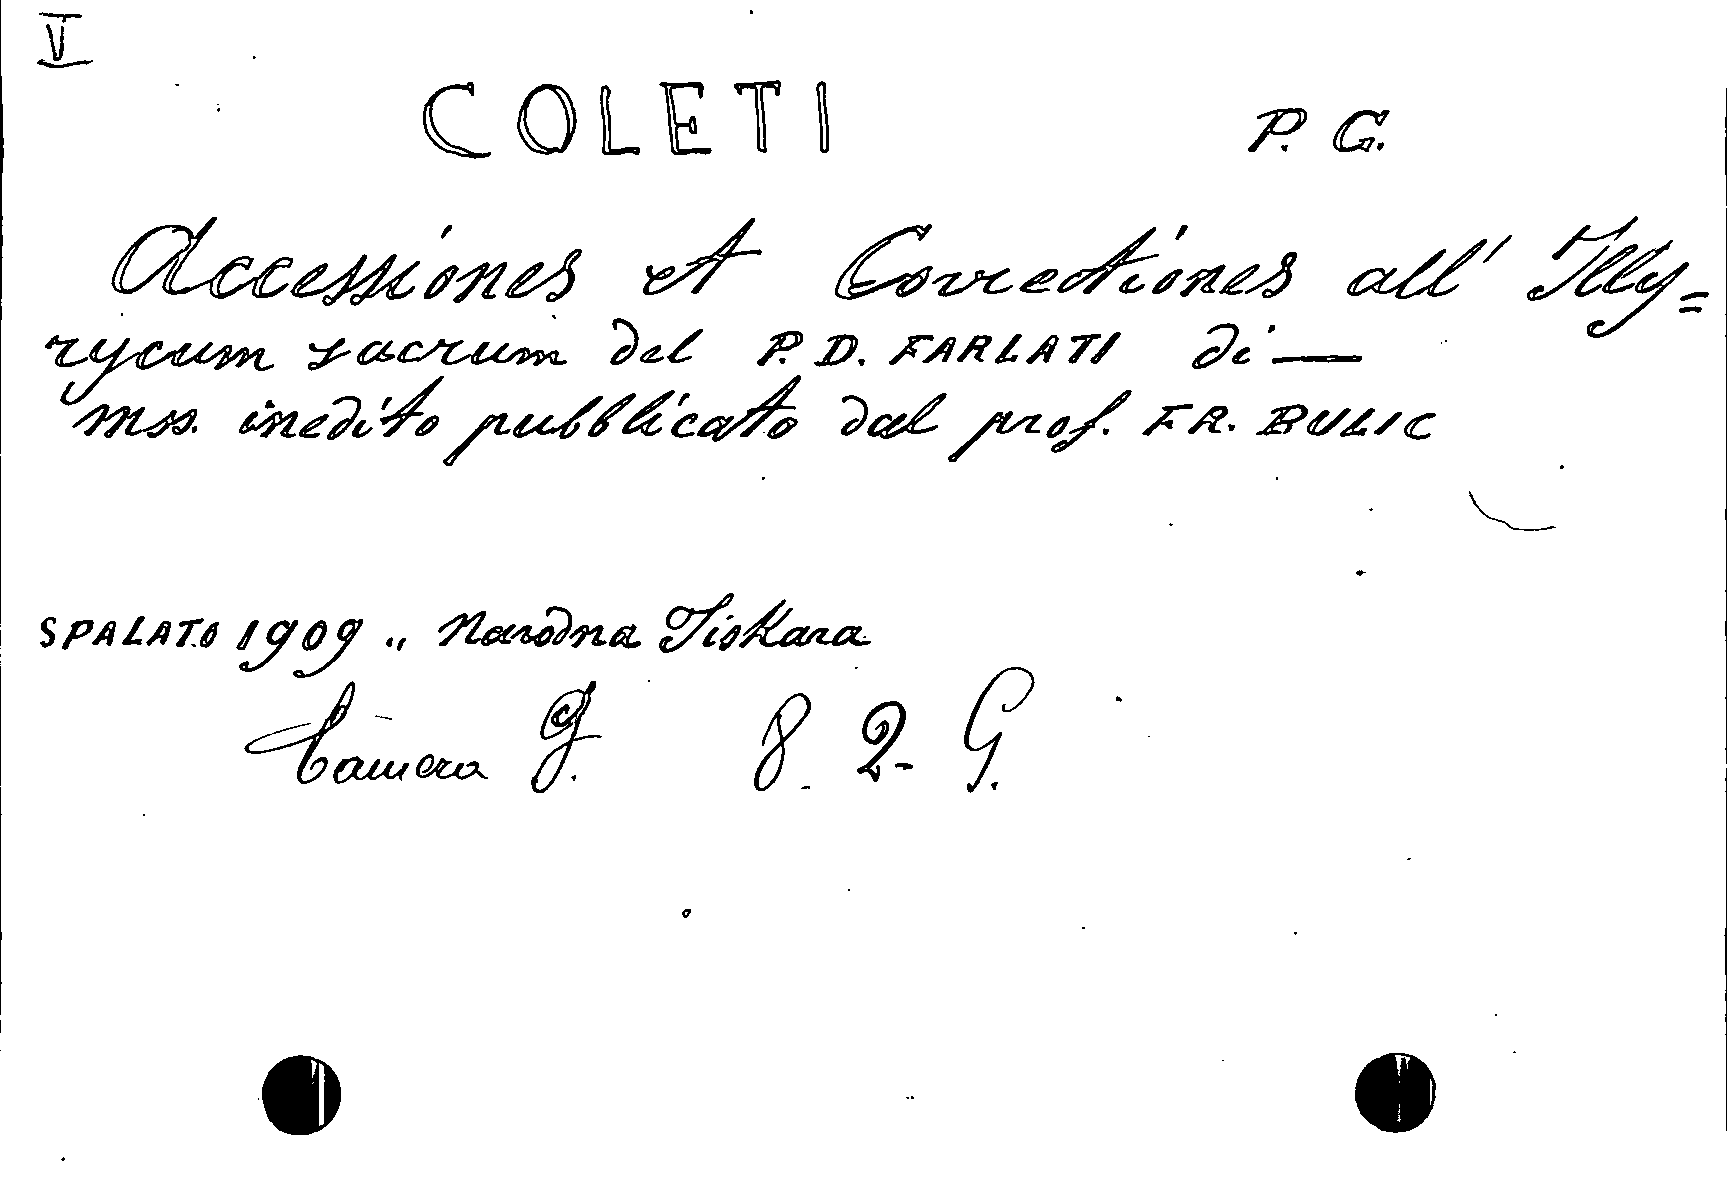 V
COLETI P. G.
Accessiones et Correctiones all' Illy=
rycum sacrum del P. D. FARLATI di —
mss. inedito pubblicato dal prof. FR. BULIC
SPALATO 1909 „ Narodna Tiskara
Camera G. 8. 2- G.